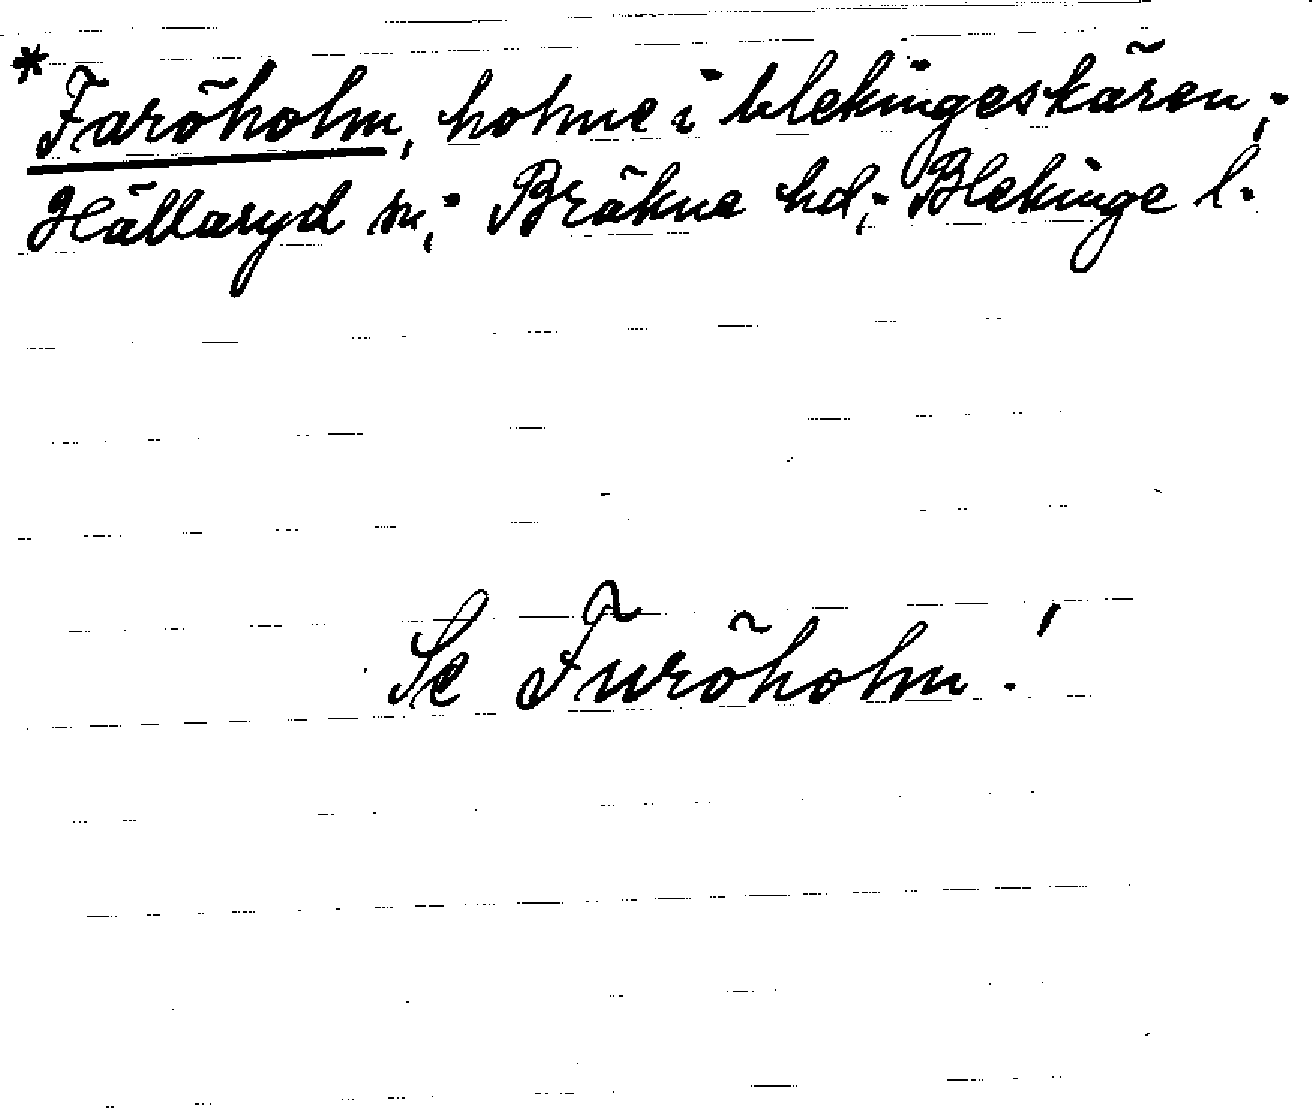 * Faröholm, holme i blekingeskären;
Hällaryd sn; Bräkne hd; Blekinge l.
Se Furöholm!